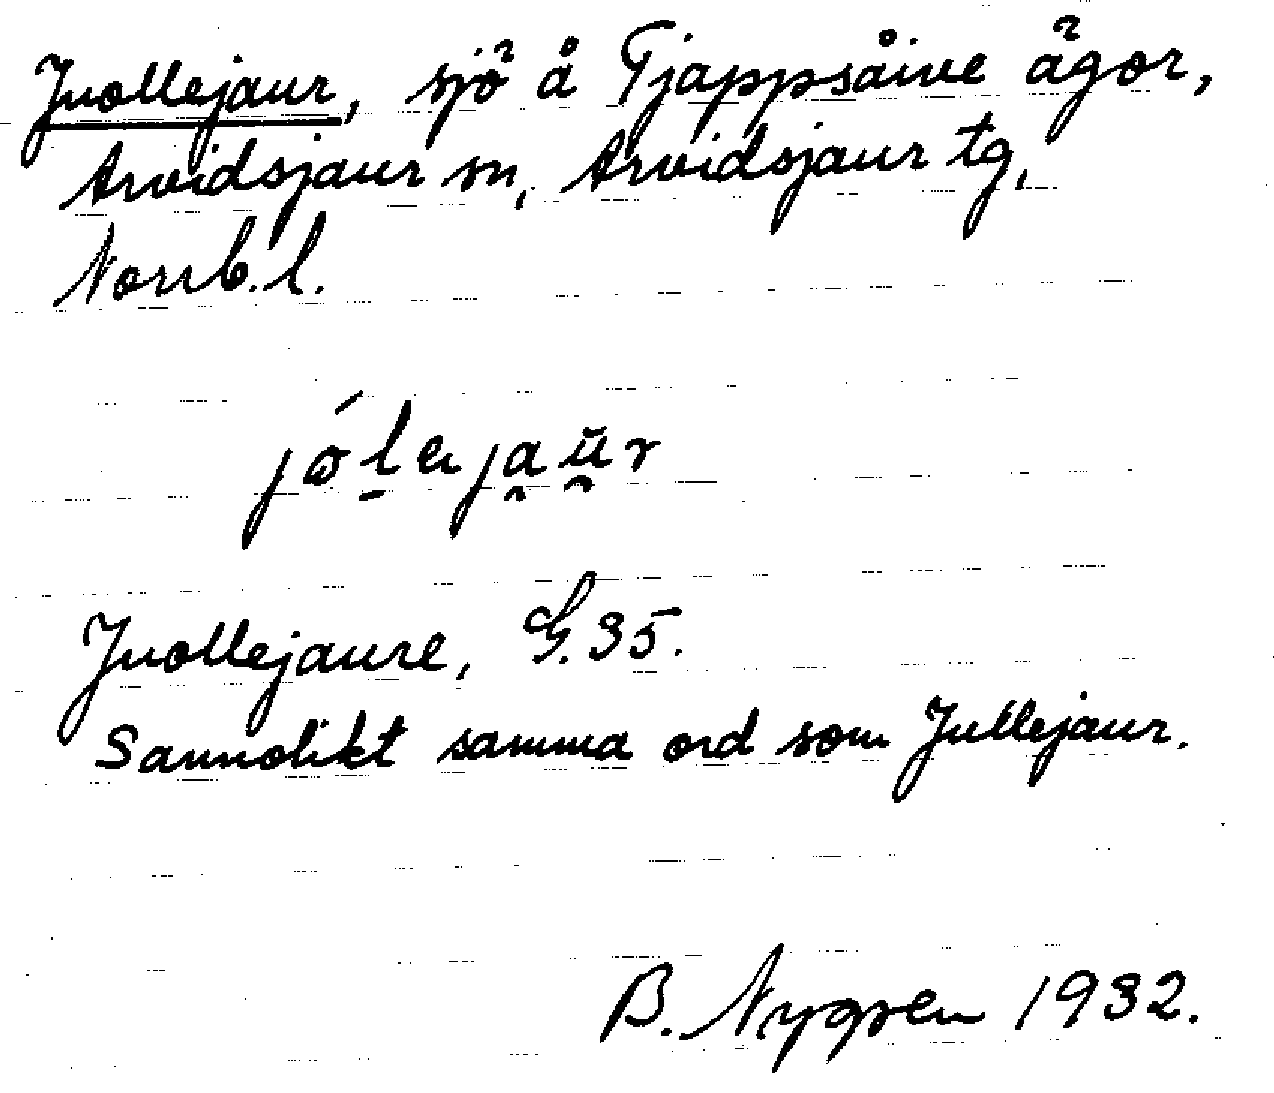 Juollejaur, sjö å Tjappsåive ägor,
Arvidsjaur sn, Arvidsjaur tg,
Norrb. l.
jólejaur
Juollejaure, G. 35.
Sannolikt samma ord som Jullejaur.
B. Nygren 1932.